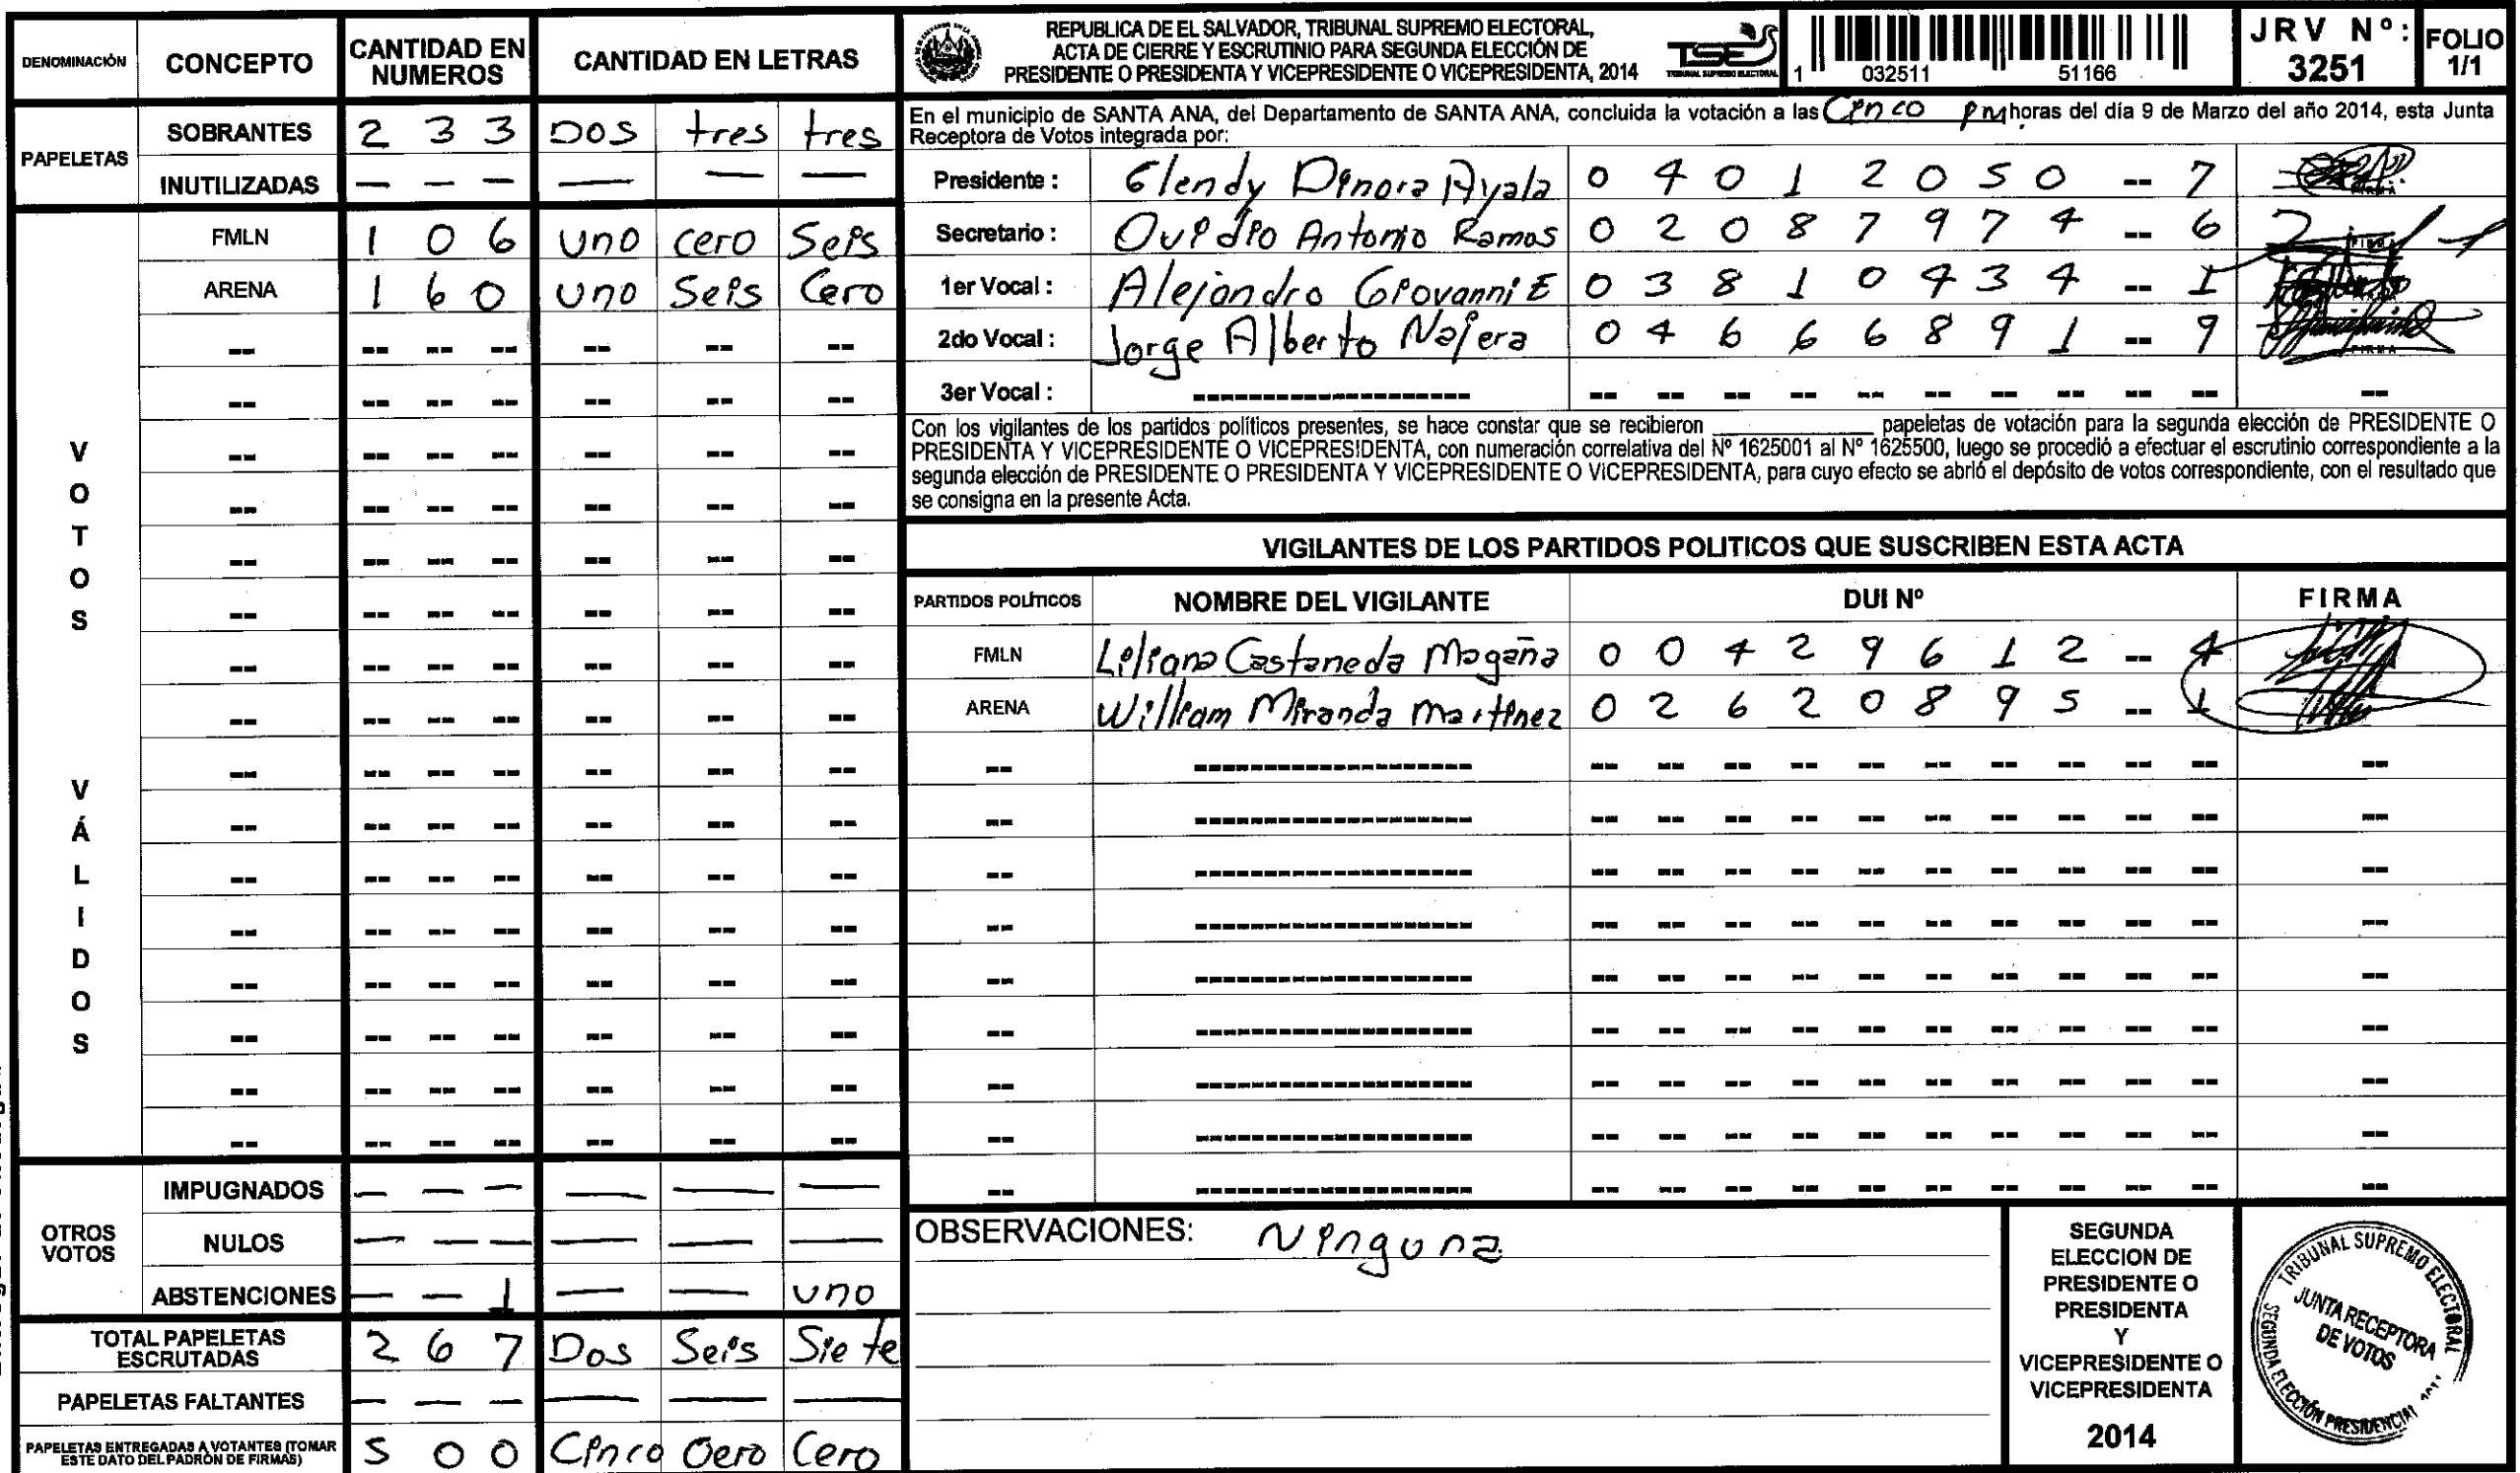 DENOMINACIÓN CONCEPTO CANTIDAD EN NUMEROS CANTIDAD EN LETRAS
PAPELETAS
SOBRANTES 2 3 3 DOS tres tres
INUTILIZADAS — — — — — —
VOTOS VÁLIDOS
FMLN 1 0 6 uno cero Seis
ARENA 1 6 0 uno Seis Cero
OTROS VOTOS
IMPUGNADOS — — — — — —
NULOS — — — — — —
ABSTENCIONES — — 1 — — uno
TOTAL PAPELETAS ESCRUTADAS 2 6 7 Dos Seis Siete
PAPELETAS FALTANTES — — — — — —
PAPELETAS ENTREGADAS A VOTANTES (TOMAR ESTE DATO DEL PADRÓN DE FIRMAS) 5 0 0 Cinco Cero Cero
REPUBLICA DE EL SALVADOR, TRIBUNAL SUPREMO ELECTORAL,
ACTA DE CIERRE Y ESCRUTINIO PARA SEGUNDA ELECCIÓN DE
PRESIDENTE O PRESIDENTA Y VICEPRESIDENTE O VICEPRESIDENTA, 2014
TSE
TRIBUNAL SUPREMO ELECTORAL
1 032511 51166
JRV Nº: 3251
FOLIO 1/1
En el municipio de SANTA ANA, del Departamento de SANTA ANA, concluida la votación a las Cinco pm horas del día 9 de Marzo del año 2014, esta Junta
Receptora de Votos integrada por:
Presidente : Glendy Dinora Ayala 0 4 0 1 2 0 5 0 -- 7
Secretario : Ovidio Antonio Ramos 0 2 0 8 7 9 7 4 -- 6
1er Vocal : Alejandro Giovanni E 0 3 8 1 0 4 3 4 -- 1
2do Vocal : Jorge Alberto Najera 0 4 6 6 6 8 9 1 -- 9
3er Vocal :
Con los vigilantes de los partidos políticos presentes, se hace constar que se recibieron ____________ papeletas de votación para la segunda elección de PRESIDENTE O
PRESIDENTA Y VICEPRESIDENTE O VICEPRESIDENTA, con numeración correlativa del Nº 1625001 al Nº 1625500, luego se procedió a efectuar el escrutinio correspondiente a la
segunda elección de PRESIDENTE O PRESIDENTA Y VICEPRESIDENTE O VICEPRESIDENTA, para cuyo efecto se abrió el depósito de votos correspondiente, con el resultado que
se consigna en la presente Acta.
VIGILANTES DE LOS PARTIDOS POLITICOS QUE SUSCRIBEN ESTA ACTA
PARTIDOS POLÍTICOS NOMBRE DEL VIGILANTE DUI Nº FIRMA
FMLN Liliana Castaneda Magaña 0 0 4 2 9 6 1 2 -- 4
ARENA William Miranda Martinez 0 2 6 2 0 8 9 5 -- 1
OBSERVACIONES: Ninguna
SEGUNDA
ELECCION DE
PRESIDENTE O
PRESIDENTA
Y
VICEPRESIDENTE O
VICEPRESIDENTA
2014
TRIBUNAL SUPREMO ELECTORAL
JUNTA RECEPTORA
DE VOTOS
SEGUNDA ELECCIÓN PRESIDENCIAL